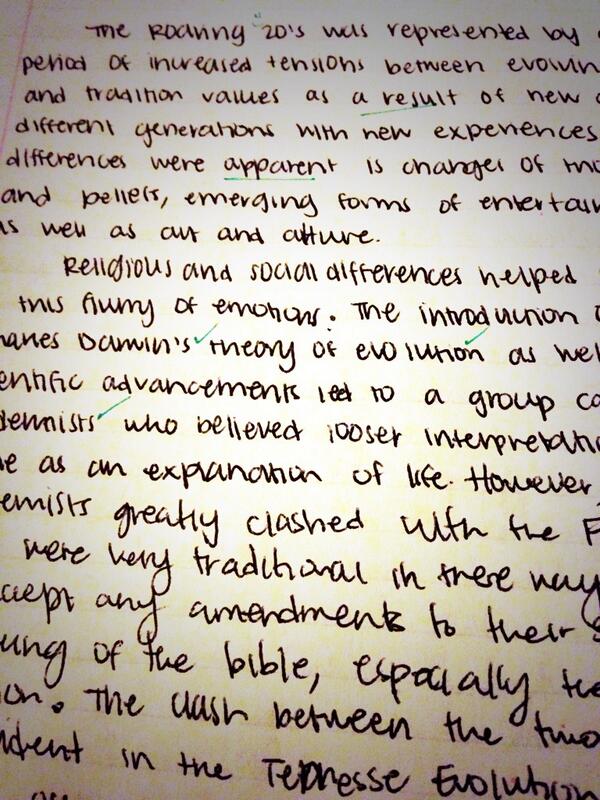 The Roaring 20's was represented by
period of increased tensions between evolvin
and tradition values as a result of new
different generations with new experiences
differences were apparent is changes of mo
and beliefs, emerging forms of entertain
as well as art and culture.
Religious and social differences helped
this flurry of emotions. The introduction
harles Darwin's theory of evolution as well
entific advancements led to a group ca
dernists who believed looser interpretatio
le as an explanation of life. However,
ernists greatly clashed with the F
were very traditional in there way
ccept any amendments to their s
ung of the bible, especially the
ion. The clash between the two
ident in the Tennesse Evolution